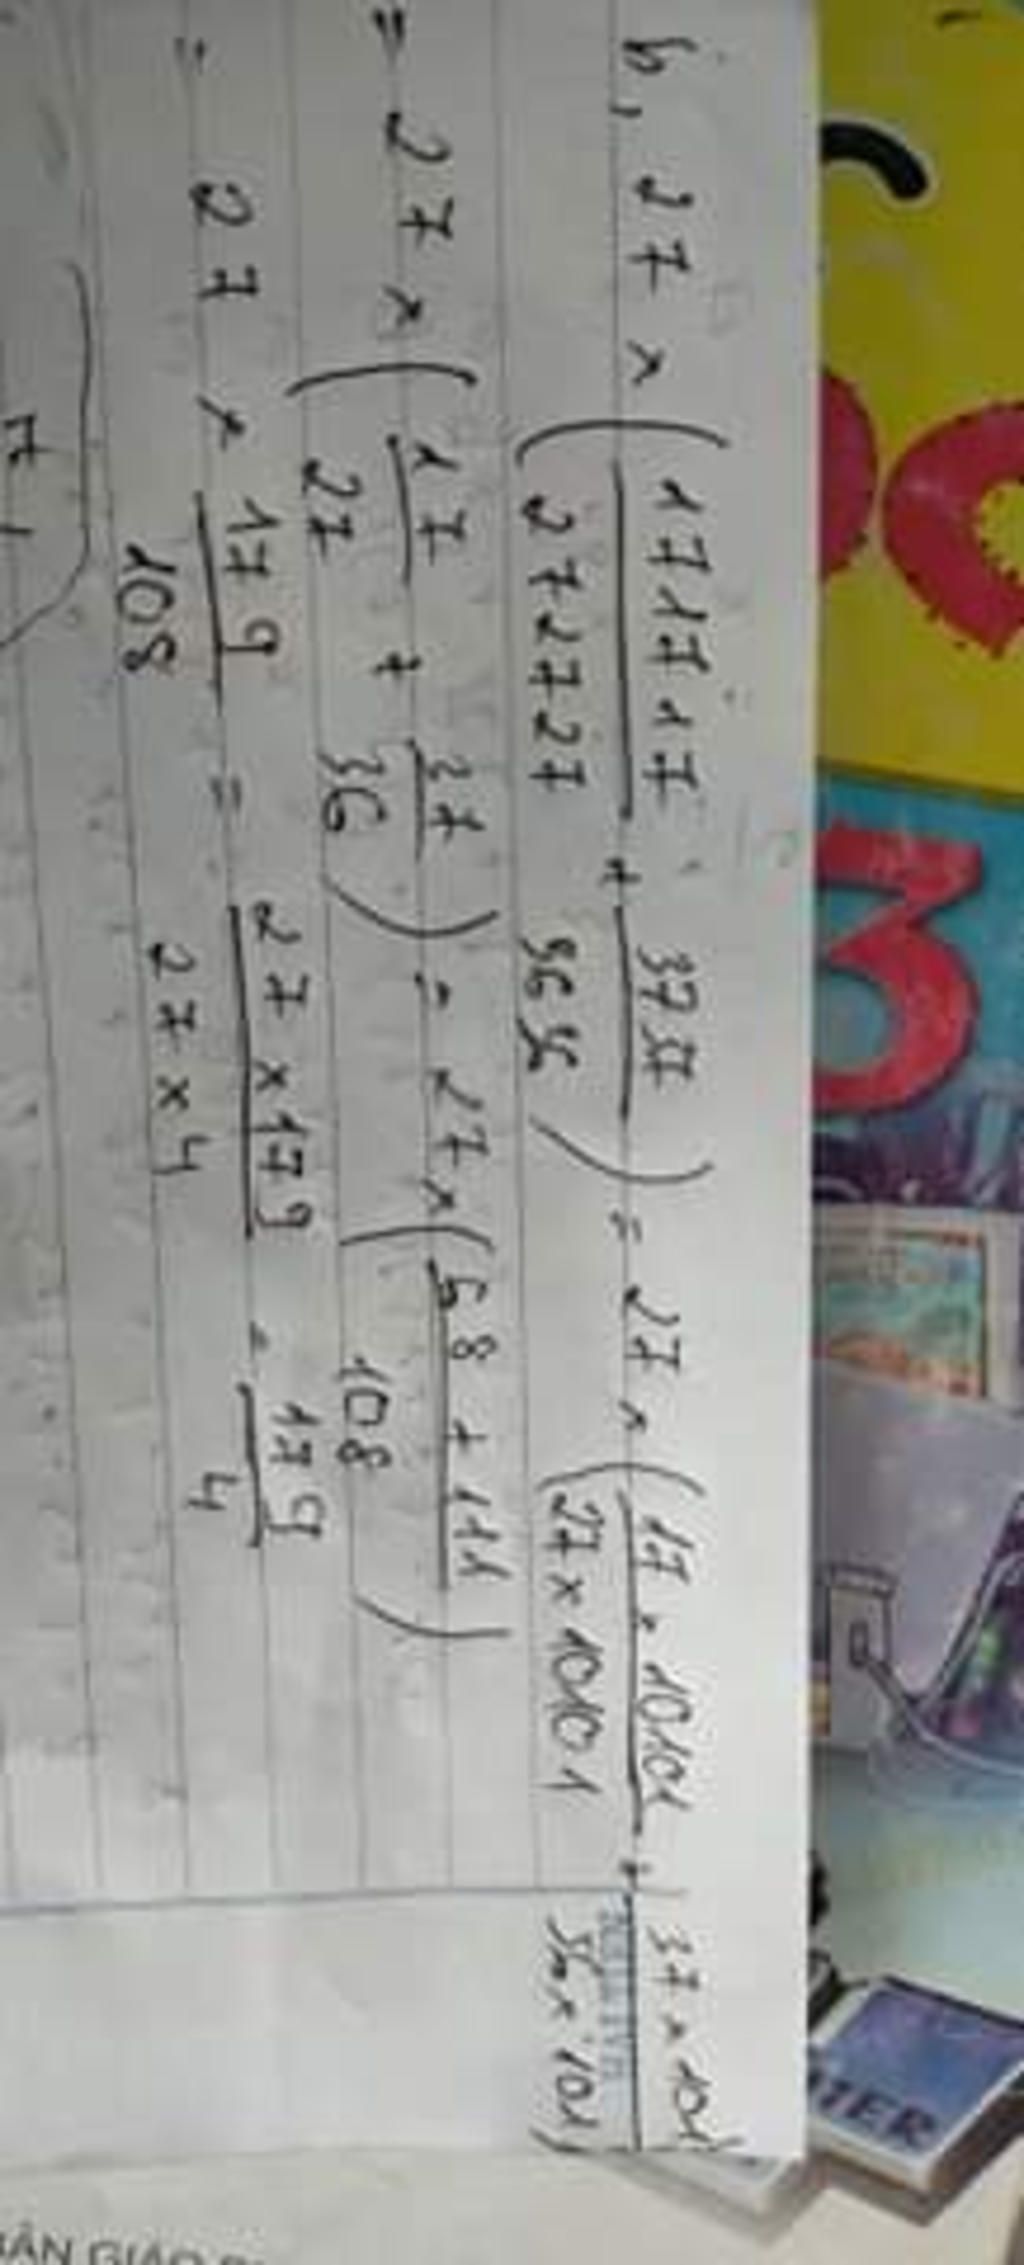 b, 27 x ( 171717 / 272727 + 3737 / 3636 ) = 27 x ( 17 x 10101 / 27 x 10101 + 37 x 101 / 36 x 101 )
= 27 x ( 17 / 27 + 37 / 36 ) = 27 x ( 68 + 111 / 108 )
= 27 x 179 / 108 = 27 x 179 / 27 x 4 = 179 / 4
3
TER
GIÁO